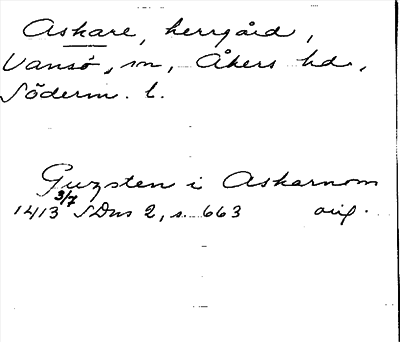 Askare, herrgård,
Vansö, sn, Åkers hd.,
Söderm. l.
Guzsten i Askarnom
1413 3/7 SDns 2, s. 663 orig.